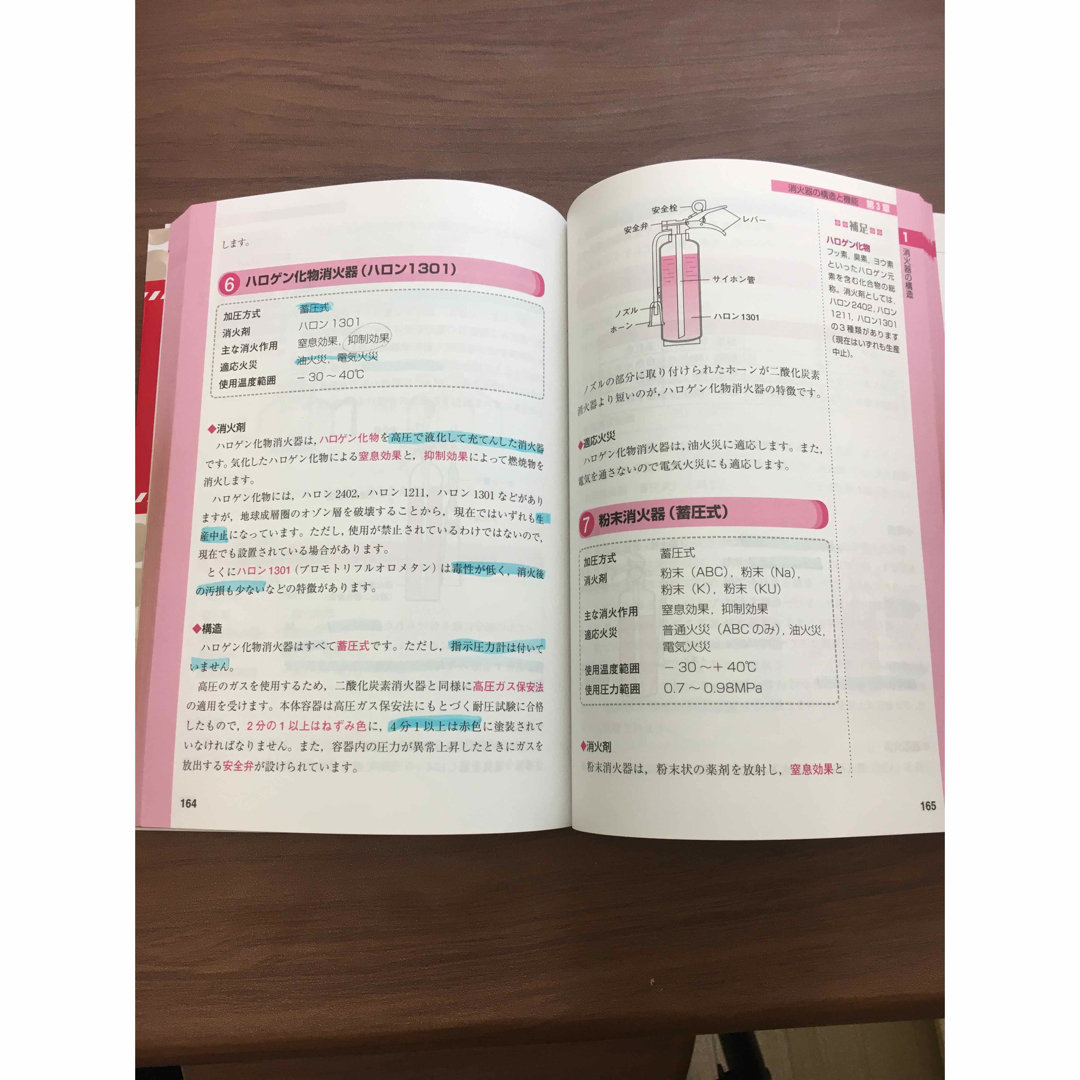 します。
6 ハロゲン化物消火器(ハロン1301)
加圧方式 蓄圧式
消火剤 ハロン1301
主な消火作用 窒息効果, 抑制効果
適応火災 油火災, 電気火災
使用温度範囲 −30〜40℃
◆消火剤
ハロゲン化物消火器は, ハロゲン化物を高圧で液化して充てんした消火器
です。気化したハロゲン化物による窒息効果と, 抑制効果によって燃焼物を
消火します。
ハロゲン化物には, ハロン2402, ハロン1211, ハロン1301などがあり
ますが, 地球成層圏のオゾン層を破壊することから, 現在ではいずれも生
産中止になっています。ただし, 使用が禁止されているわけではないので,
現在でも設置されている場合があります。
とくにハロン1301(ブロモトリフルオロメタン)は毒性が低く, 消火後
の汚損も少ないなどの特徴があります。
◆構造
ハロゲン化物消火器はすべて蓄圧式です。ただし, 指示圧力計は付いて
いません。
高圧のガスを使用するため, 二酸化炭素消火器と同様に高圧ガス保安法
の適用を受けます。本体容器は高圧ガス保安法にもとづく耐圧試験に合格
したもので, 2分の1以上はねずみ色に, 4分1以上は赤色に塗装されて
いなければなりません。また, 容器内の圧力が異常上昇したときにガスを
放出する安全弁が設けられています。
164
消火器の構造と機能 第3章
安全栓
安全弁
レバー
サイホン管
ノズル
ホーン
ハロン1301
ノズルの部分に取り付けられたホーンが二酸化炭素
消火器より短いのが, ハロゲン化物消火器の特徴です。
◆適応火災
ハロゲン化物消火器は, 油火災に適応します。また,
電気を通さないので電気火災にも適応します。
7 粉末消火器(蓄圧式)
加圧方式 蓄圧式
消火剤 粉末(ABC), 粉末(Na),
粉末(K), 粉末(KU)
主な消火作用 窒息効果, 抑制効果
適応火災 普通火災(ABCのみ), 油火災,
電気火災
使用温度範囲 −30〜+40℃
使用圧力範囲 0.7〜0.98MPa
◆消火剤
粉末消火器は, 粉末状の薬剤を放射し, 窒息効果と
補足
ハロゲン化物
フッ素, 臭素, ヨウ素
といったハロゲン元
素を含む化合物の総
称。消火剤としては,
ハロン2402, ハロン
1211, ハロン1301
の3種類があります
(現在はいずれも生産
中止)。
1
消火器の構造
165